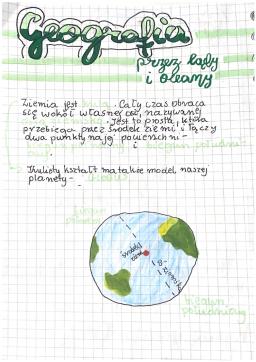 Geografia
przez lądy
i oceany
Ziemia jest kulą. Cały czas obraca
się wokół własnej osi, nazywanej
. Jest to prosta, która
przebiega przez środek ziemi i łączy
dwa punkty na jej powierzchni -
i biegun południowy
Kulisty kształt ma także model naszej
planety - globus
biegun
środek
ziemi
oś
ziemska
biegun
południowy